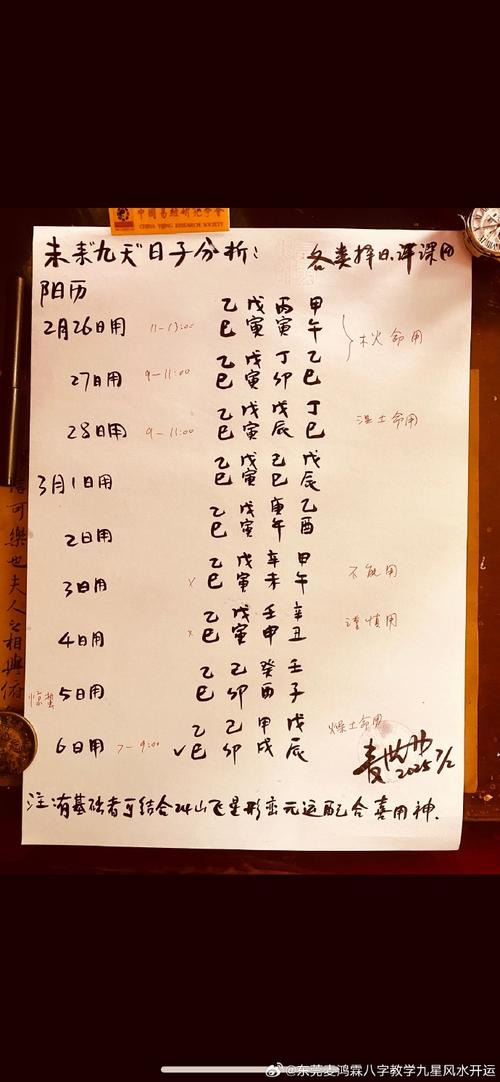 中國易經研究學會
CHINA YIJING RESEARCH SOCIETY
未来九天日子分析：
各类择日评课用
阳历
乙 戊 丙 甲
2月26日用 11-13:00 巳 寅 寅 午 木火命用
乙 戊 丁 乙
27日用 9-11:00 巳 寅 卯 巳
乙 戊 戊 丁
28日用 9-11:00 巳 寅 辰 巳 湿土命用
乙 戊 己 戊
3月1日用 巳 寅 巳 辰
乙 戊 庚 乙
2日用 巳 寅 午 酉
乙 戊 辛 甲
3日用 x 巳 寅 未 午 不能用
乙 戊 壬 辛
4日用 x 巳 寅 申 丑 谨慎用
乙 己 癸 壬
惊蛰 5日用 巳 卯 酉 子
乙 己 甲 戊
6日用 7-9:00 ✓ 巳 卯 戌 辰 燥土命用
2025
注：有基础者可结合24山飞星形峦元运配合喜用神.
可樂也夫人之相與俯
@东莞麦鸿霖八字教学九星风水开运